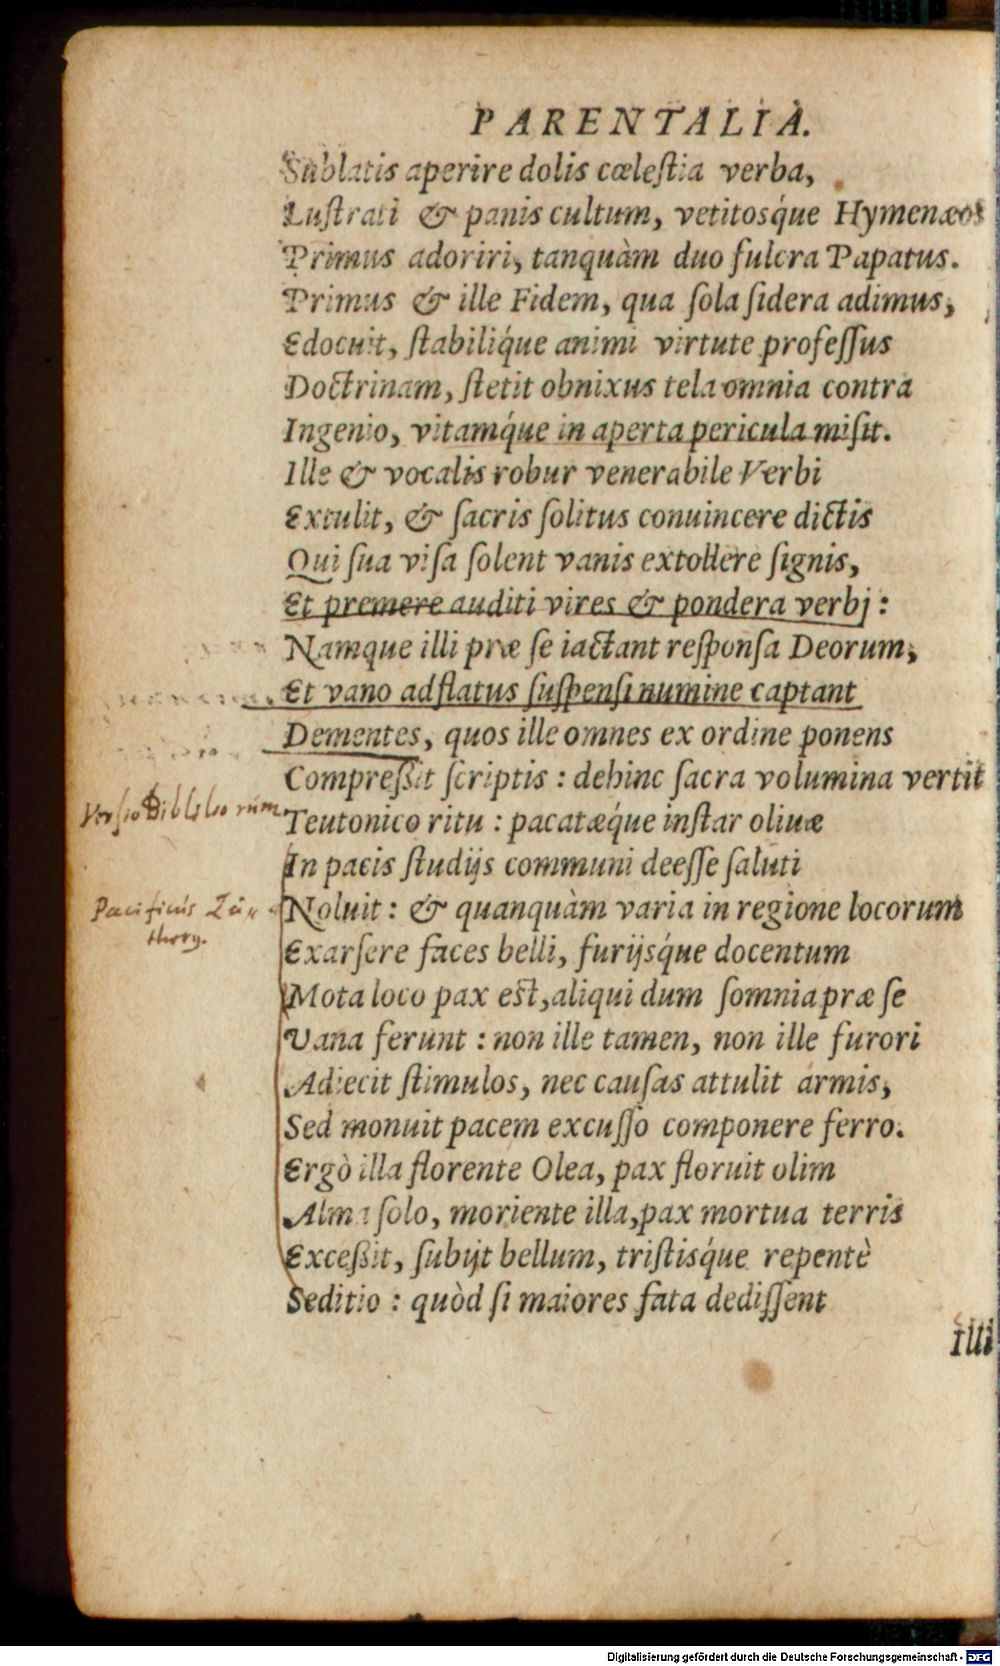 PARENTALIA.
Sublatis aperire dolis cœleſtia verba,
Luſtrati & panis cultum, vetitosq́ue Hymenæos
Primus adoriri, tanquàm duo fulcra Papatus.
Primus & ille Fidem, qua ſola ſidera adimus,
Edocuit, ſtabiliq́ue animi virtute profeſſus
Doctrinam, ſtetit obnixus tela omnia contra
Ingenio, vitamq́ue in aperta pericula miſit.
Ille & vocalis robur venerabile Verbi
Extulit, & ſacris ſolitus conuincere dictis
Qui ſua viſa ſolent vanis extollere ſignis,
Et premere auditi vires & pondera verbj:
Namque illi præ ſe iactant reſponſa Deorum,
Et vano adflatus ſuſpenſi numine captant
Dementes, quos ille omnes ex ordine ponens
Compreßit ſcriptis: dehinc ſacra volumina vertit
Versio Bibliorum
Teutonico ritu: pacatæq́ue inſtar oliuæ
In pacis ſtudijs communi deeſſe ſaluti
Pacificus
Noluit: & quanquàm varia in regione locorum
Exarſere faces belli, furijsq́ue docentum
Mota loco pax est, aliqui dum ſomnia præ ſe
Vana ferunt: non ille tamen, non ille furori
Adiecit ſtimulos, nec cauſas attulit armis,
Sed monuit pacem excuſſo componere ferro.
Ergò illa florente Olea, pax floruit olim
Alma ſolo, moriente illa, pax mortua terris
Exceßit, ſubijt bellum, triſtisq́ue repentè
Seditio: quòd ſi maiores fata dediſſent
Illi
Digitalisierung gefördert durch die Deutsche Forschungsgemeinschaft - DFG